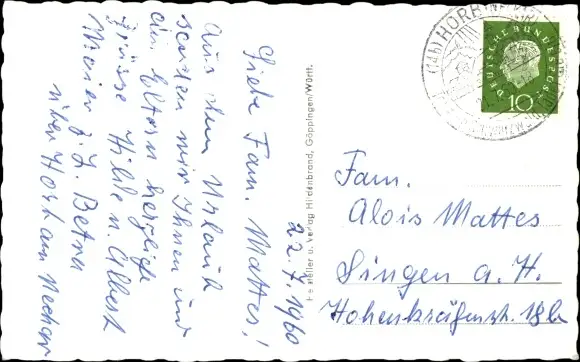 22.7.1960
Liebe Fam. Mattes!
Aus dem Urlaub
senden wir Ihnen und
den Eltern herzliche
Grüsse Hilde u. Albert
Maier z.Z. Betra
über Horb am Neckar
Hersteller u. Verlag Hirdenbrand, Göppingen/Württ.
(14b) HORB (NECKAR)
DEUTSCHE BUNDESPOST
10
Fam.
Alois Mattes
Singen a. H.
Hohenkrähenstr. 18b